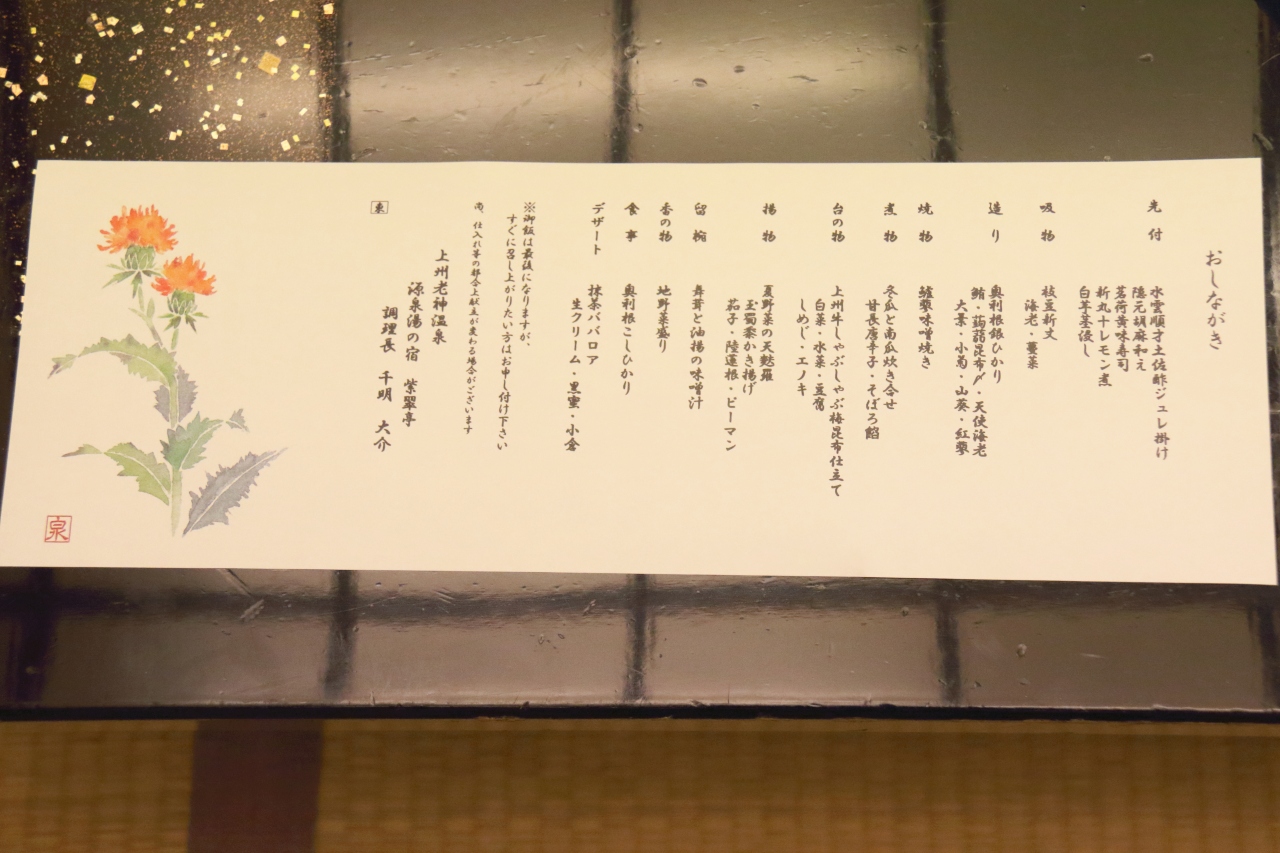 おしながき
先付 水雲順才土佐酢ジュレ掛け
隠元胡麻和え
茗荷黄味寿司
新丸十レモン煮
白芋茎浸し
吸物 枝豆新丈
海老・蔓菜
造り 奥利根銀ひかり
鮪・蒟蒻昆布〆・天使海老
大葉・小菊・山葵・紅蓼
焼物 鱸蓼味噌焼き
煮物 冬瓜と南瓜炊き合せ
甘長唐辛子・そぼろ餡
台の物 上州牛しゃぶしゃぶ梅昆布仕立て
白菜・水菜・豆富
しめじ・エノキ
揚物 夏野菜の天麩羅
玉蜀黍かき揚げ
茄子・陸蓮根・ピーマン
留椀 舞茸と油揚の味噌汁
香の物 地野菜盛り
食事 奥利根こしひかり
デザート 抹茶ババロア
生クリーム・黒蜜・小倉
※御飯は最後になりますが、
すぐに召し上がりたい方はお申し付け下さい
尚、仕入れ等の都合上献立が変わる場合がございます
上州老神温泉
源泉湯の宿 紫翠亭
調理長 千明 大介
東
泉